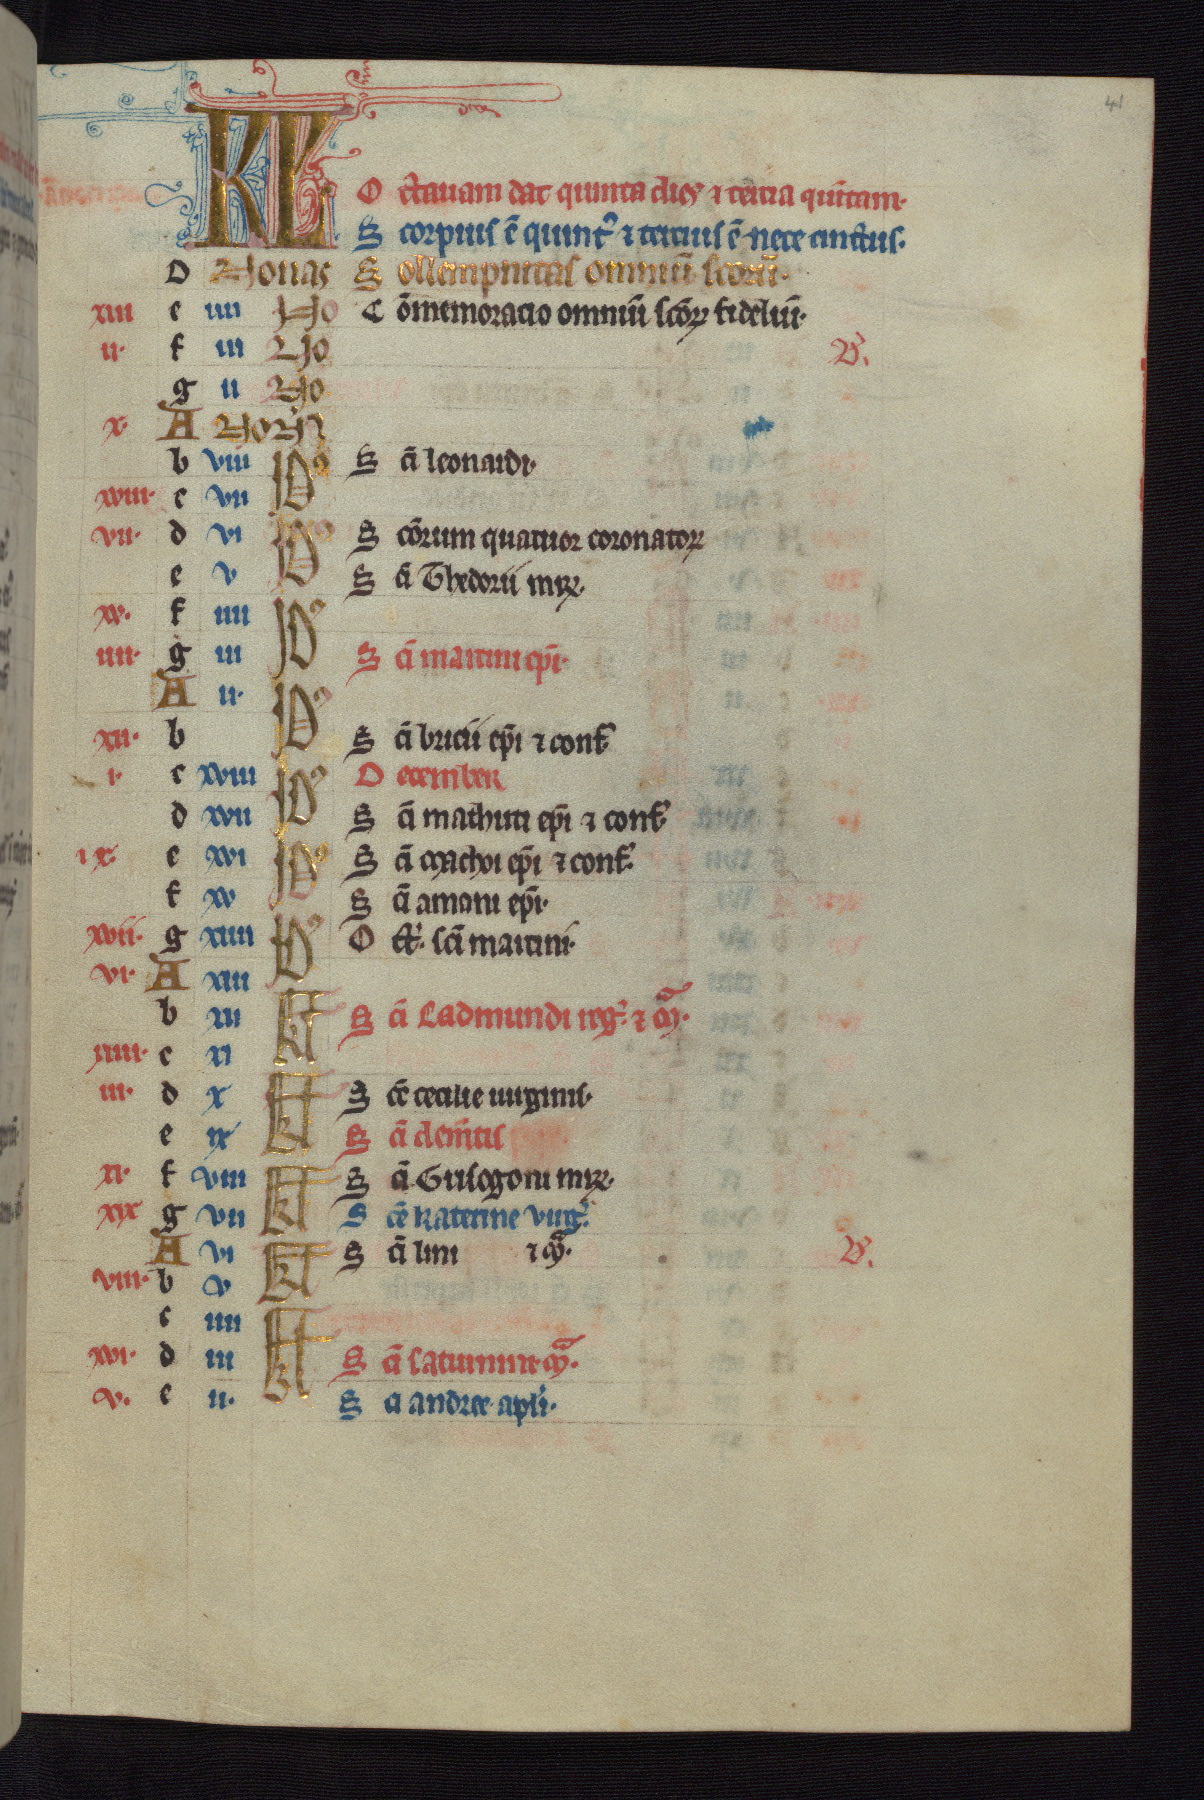 41
KL O ctauam dat quinta dies ⁊ tercia quītam·
S corpius ē quint᷒ ⁊ tercius ē nece cinctus·
D Nonas S ollempnitas omniū scorū·
xiii e iiii No C ōmemoracio omniū scōꝝ fideliū·
ii· f iii No
g ii No
x· A Non
b viii Id S ci leonardi·
xviii· c vii
vii· d vi Id S cōrum quatuor coronatoꝝ
e v S ci Thedorii mrꝝ·
xv· f iiii Id
iiii· g iii S ci martini epi·
A ii· Id
xii· b S ci bricii epi ⁊ conf
i· c xviii Id D ecember
d xvii S ci machuti epi ⁊ conf
ix e xvi Id S ci machoi epi ⁊ conf·
f xv S ci amani epi·
xvii· g xiiii Id O ct· sci martini·
vi· A xiii
b xii kl S ci Eadmundi reg· ⁊ m·
xiiii· c xi
iii· d x kl S ce cecilie uirginis·
e ix S ci clem̄tis
xi· f viii kl S ci Grisogoni mrꝝ·
xix g vii S ce katerine virg·
A vi kl S ci lini ⁊ m·
viii· b v
c iiii kl
xvi· d iii S ci saturnini m·
v· e ii· S ci andree apli·